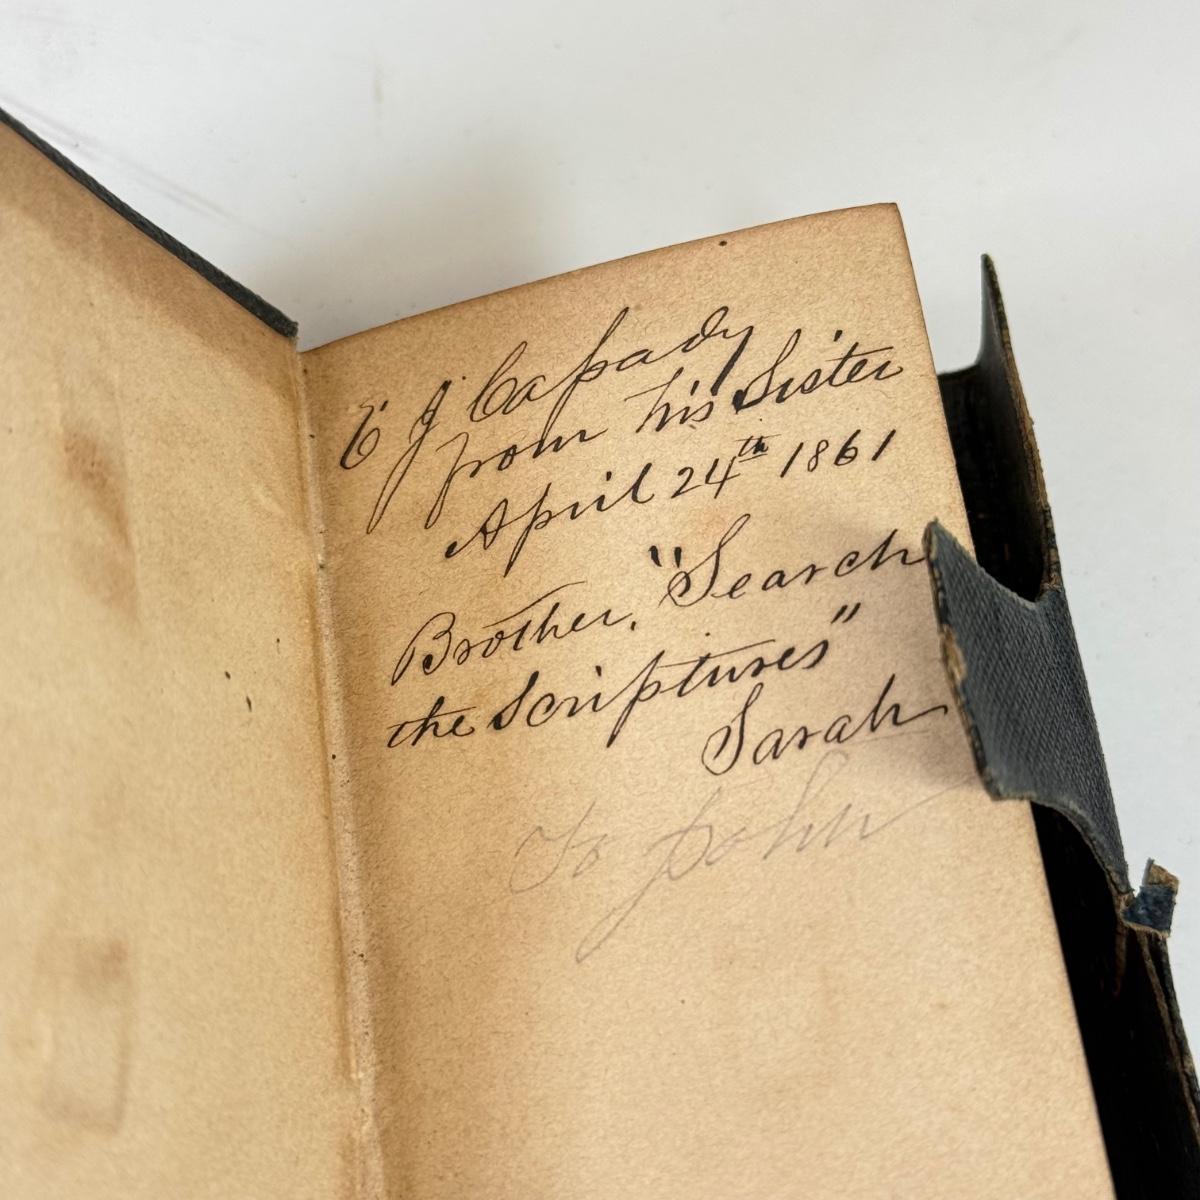 E J Capady
from his Sister
April 24th 1861
Brother, "Search
the Scriptures"
Sarah
To John